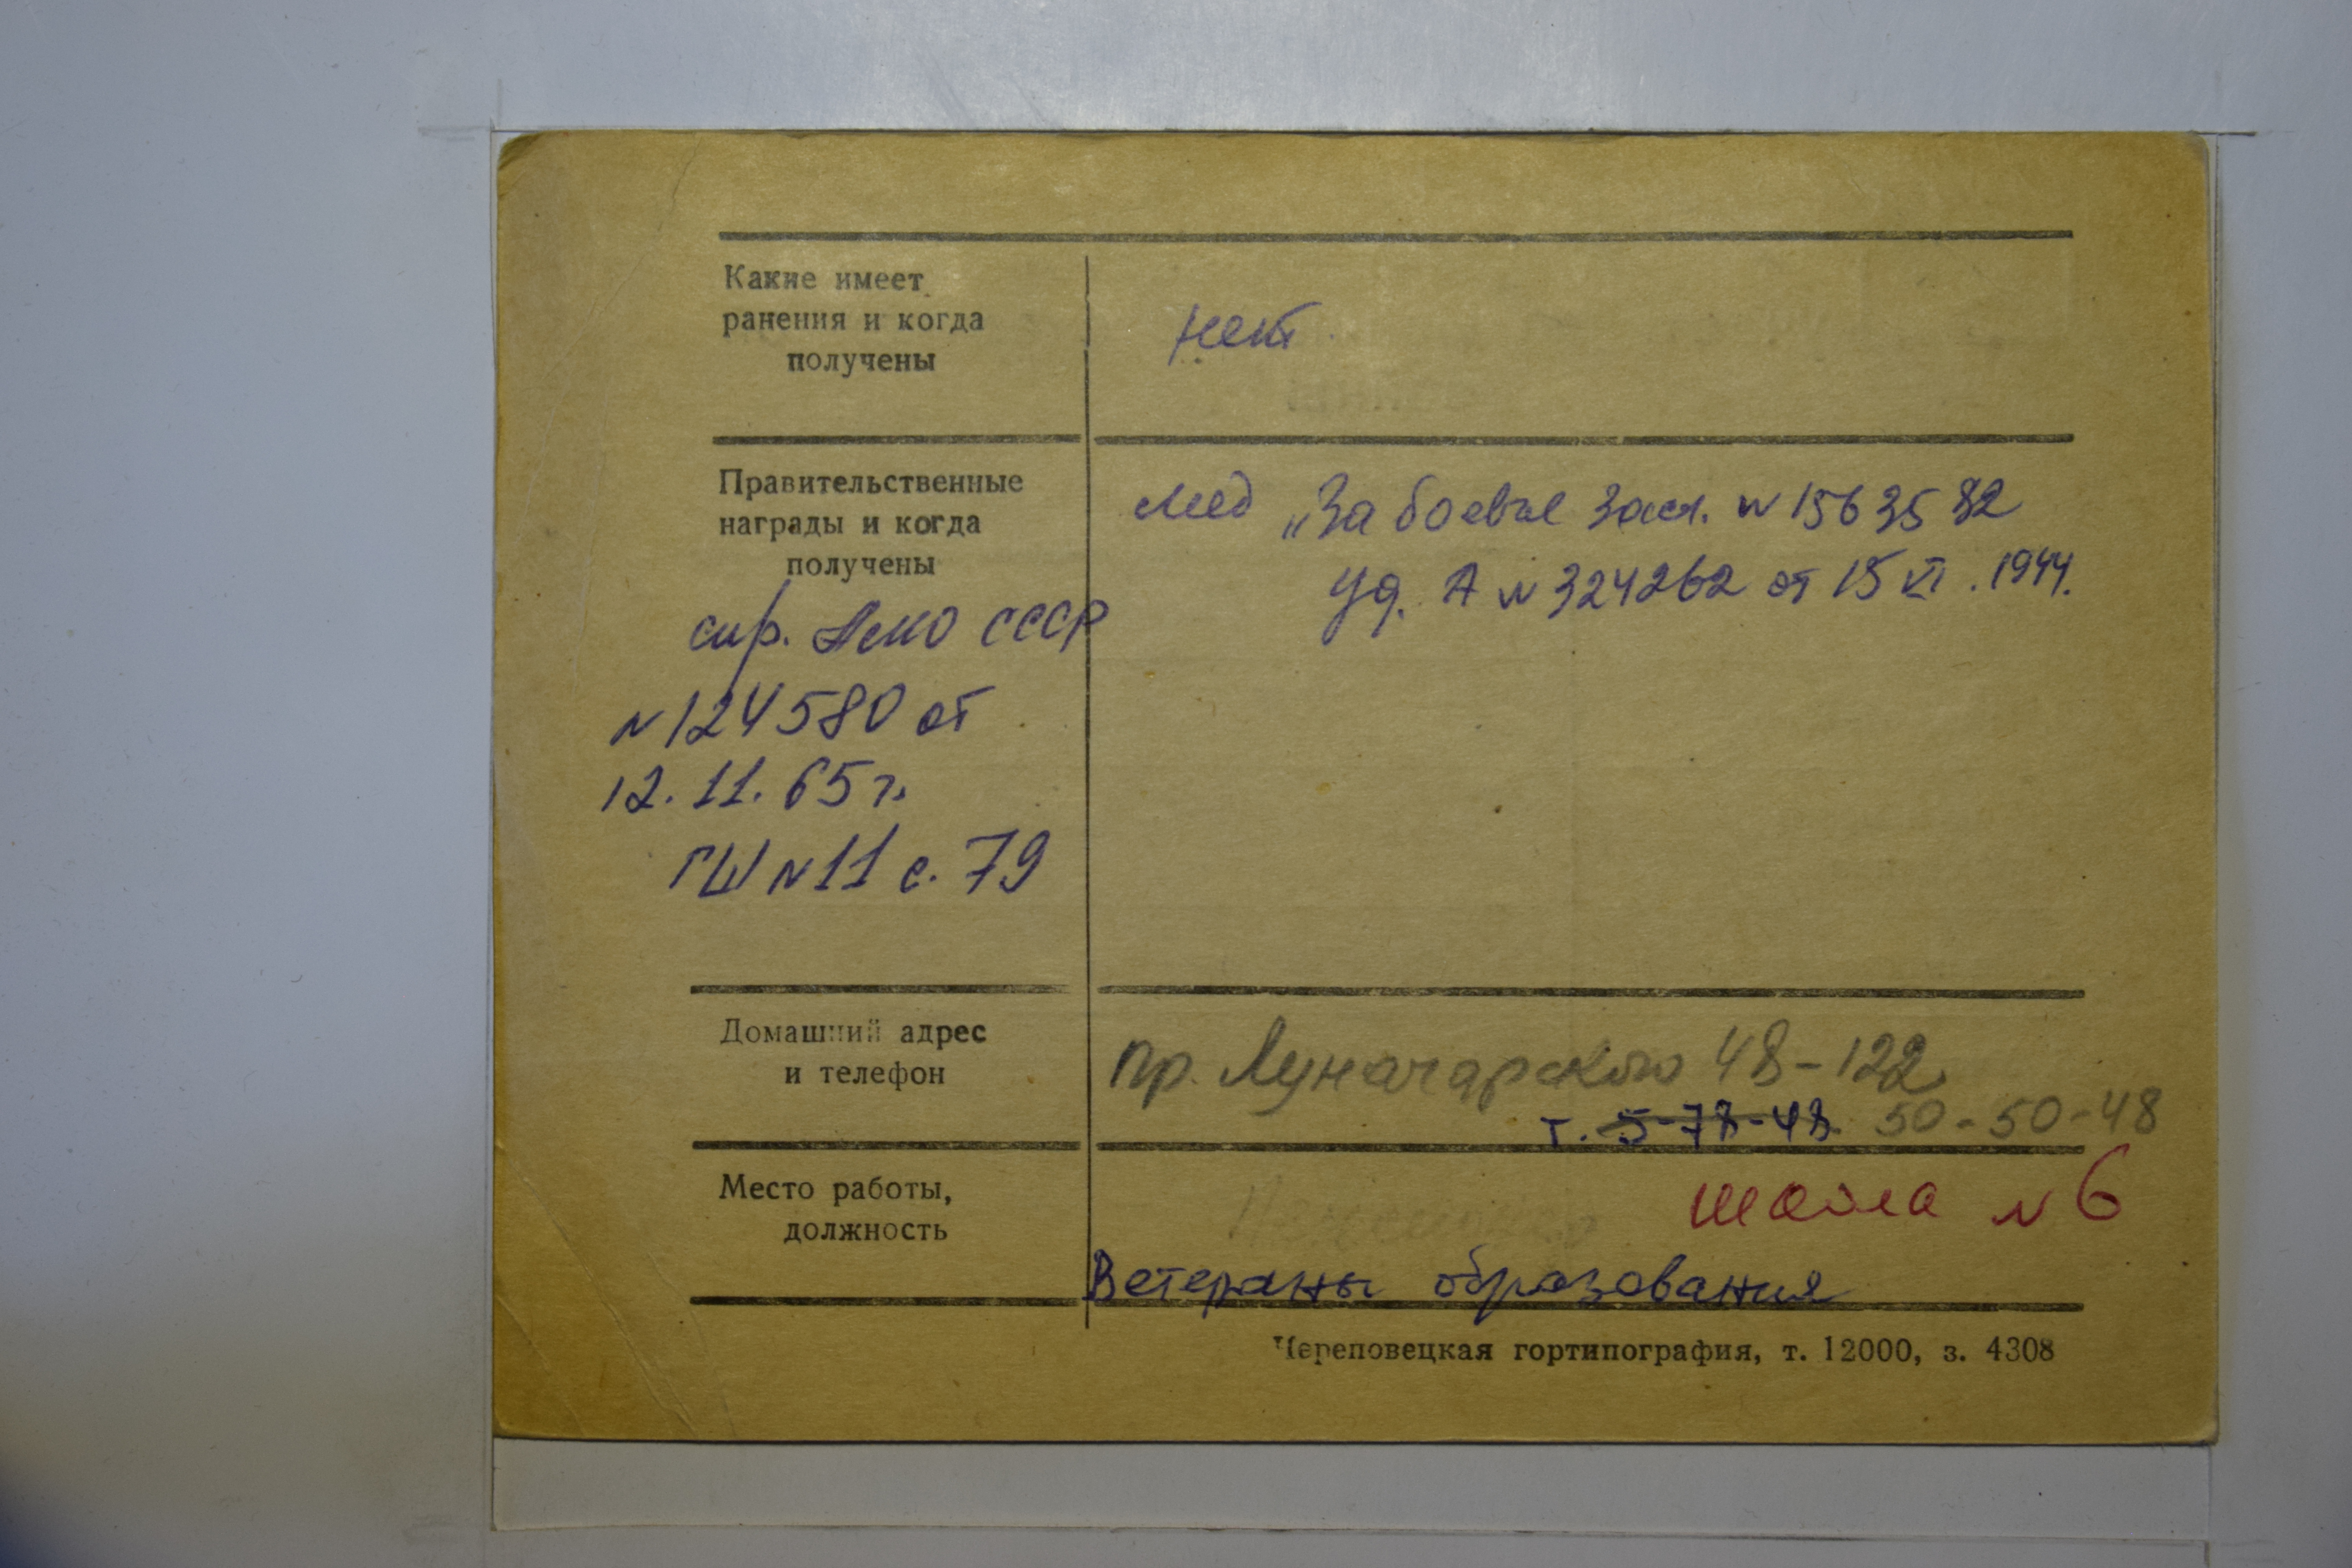 Какие имеет
ранения и когда
получены
нет
Правительственные
награды и когда
получены
мед „За боевые засл. N 1563582
Уд. А N 324262 от 15 VI. 1944.
спр. Амо СССР
N 124580 от
12.11.65 г.
ГШ N 11 с. 79
Домашний адрес
и телефон
пр. Луначарского 48-122
т. 5-78-48 50-50-48
Место работы,
должность
школа N 6
Ветераны образования
Череповецкая гортипография, т. 12000, з. 4308